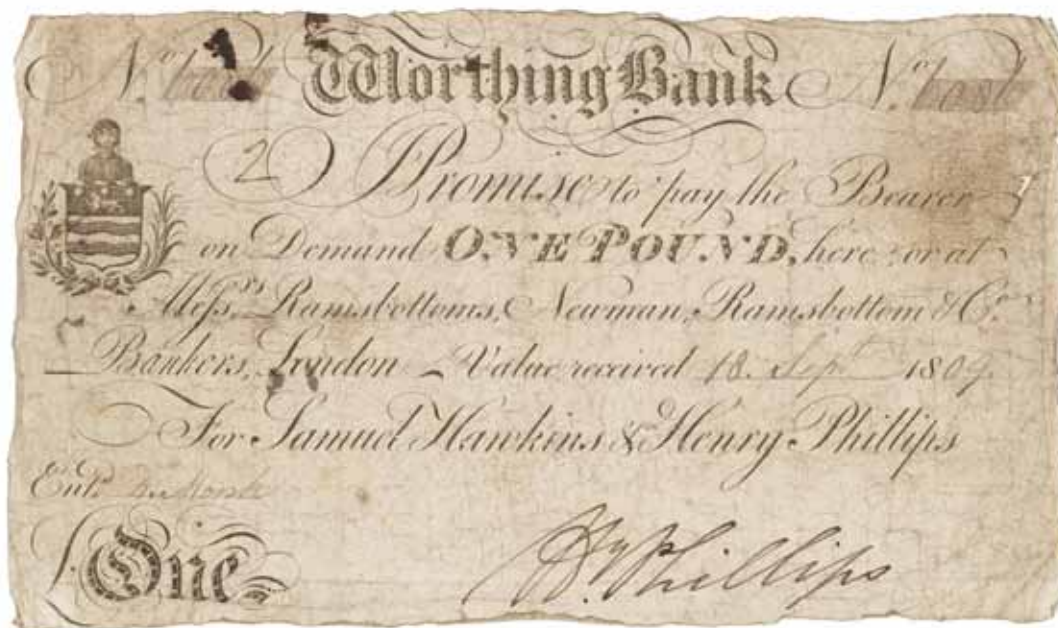 No. Worthing Bank No. 6086
2 I Promise to pay the Bearer
on Demand ONE POUND, here or at
Messrs. Ramsbottoms, Newman, Ramsbottom & Co.
Bankers, London Value received 18. Sept 1809.
For Samuel Hawkins & Henry Phillips
Entd.
£ One
Hy Phillips